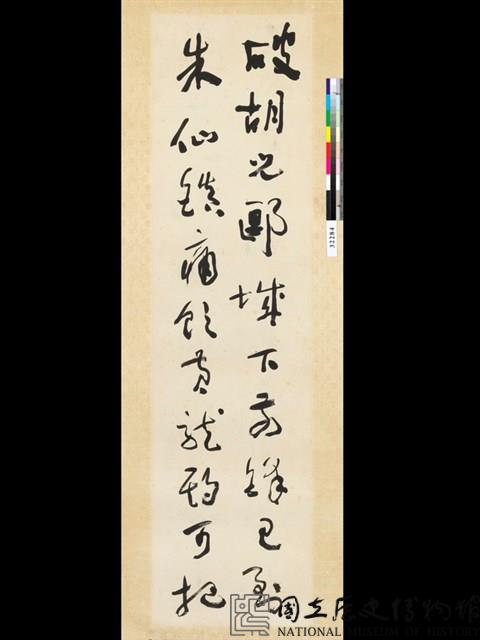 破胡兒郾城下前鋒已至
朱仙鎮痛飲黃龍可把
國立歷史博物館
NATIONAL MUSEUM OF HISTORY